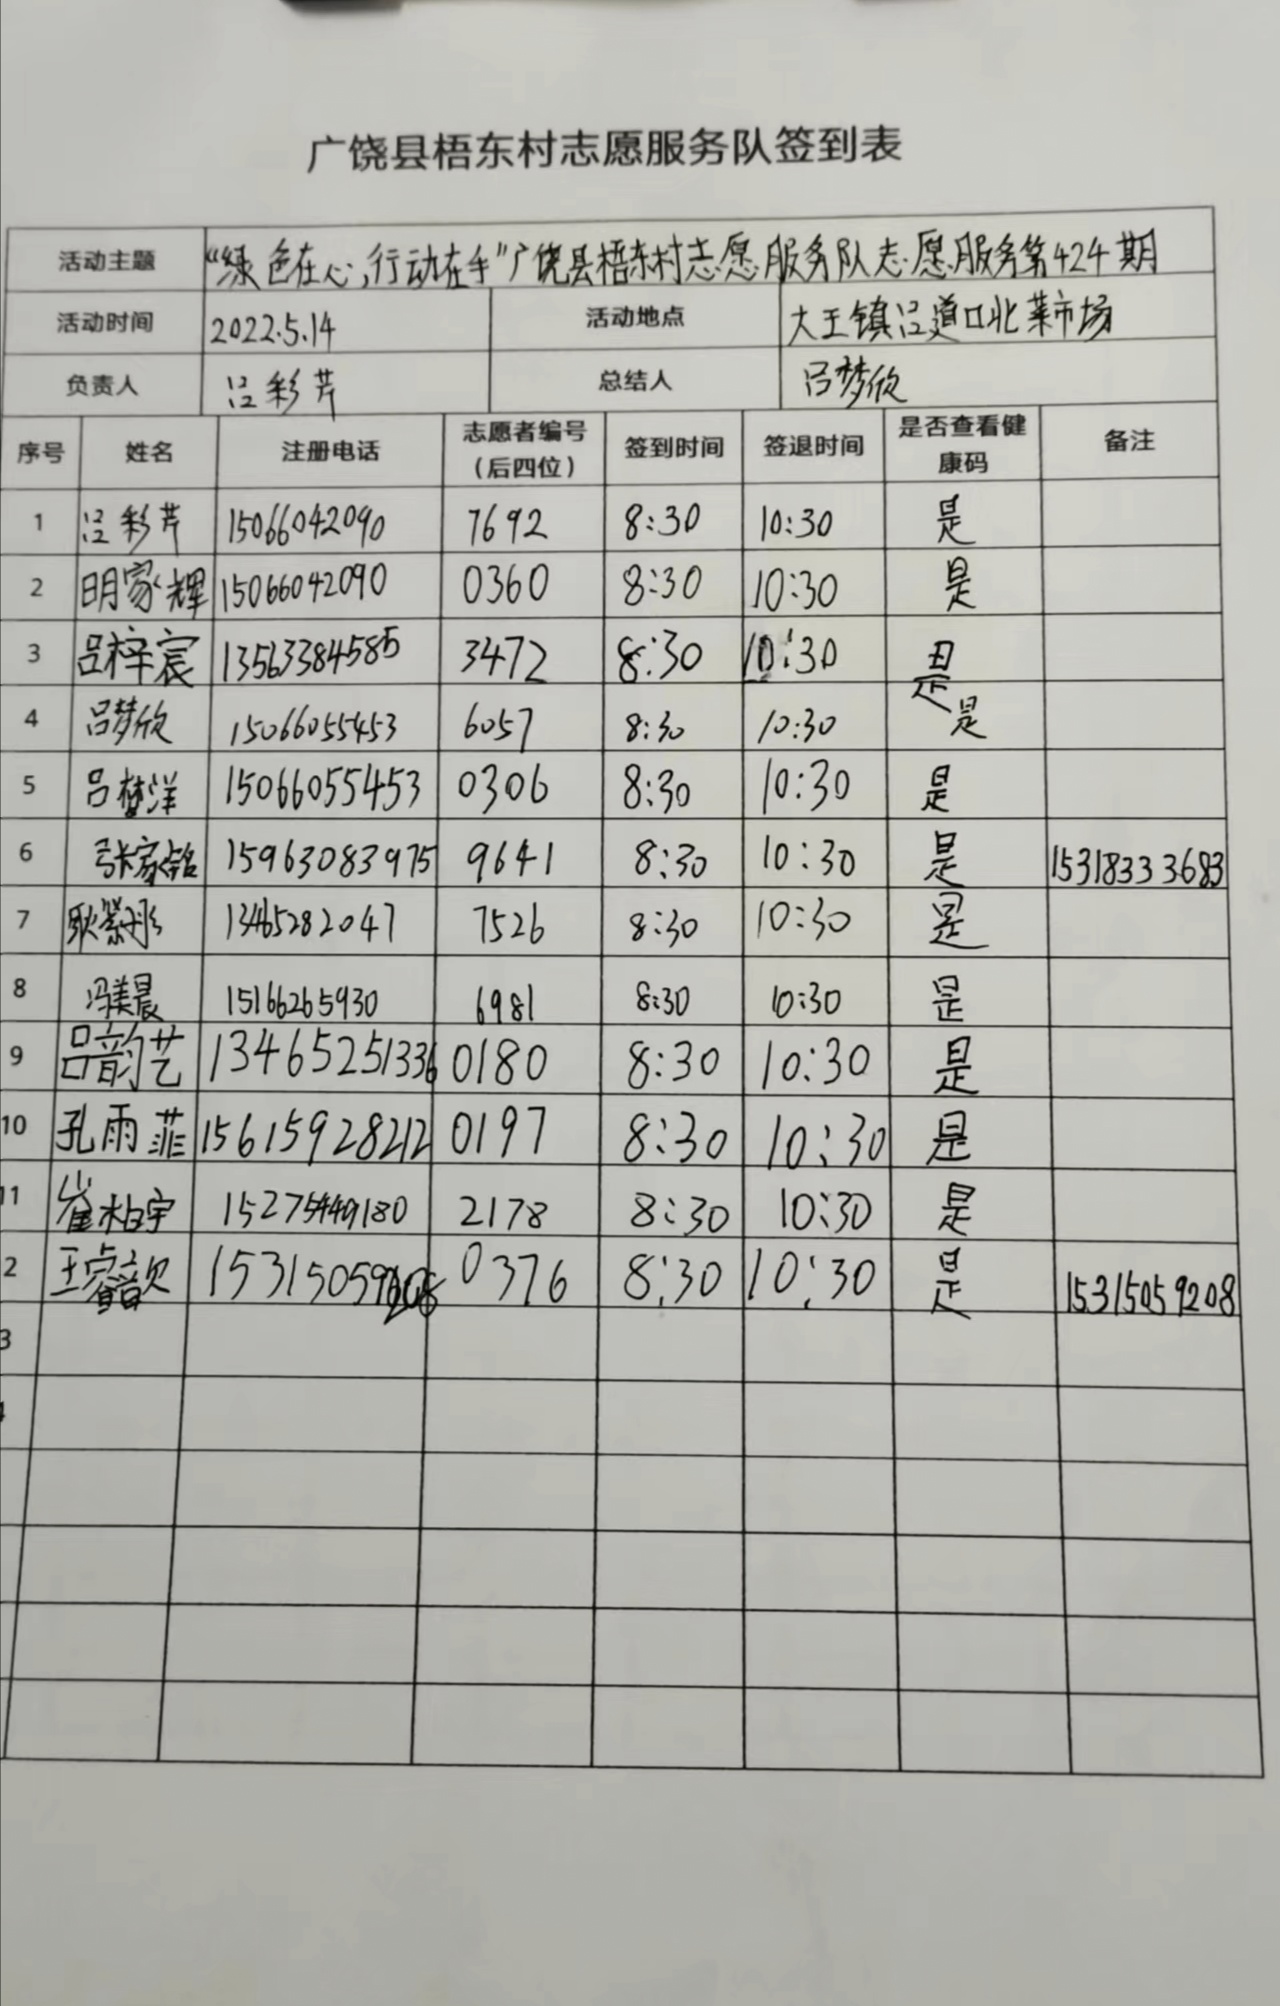 广饶县梧东村志愿服务队签到表
活动主题 “绿色在心,行动在手”广饶县梧东村志愿服务队志愿服务第424期
活动时间 2022.5.14 活动地点 大王镇吕道口北菜市场
负责人 吕彩芹 总结人 吕梦欣
序号 姓名 注册电话 志愿者编号（后四位） 签到时间 签退时间 是否查看健康码 备注
1 吕彩芹 15066042090 7692 8:30 10:30 是
2 明家辉 15066042090 0360 8:30 10:30 是
3 吕梓宸 13563384585 3472 8:30 10:30 是
4 吕梦欣 15066055453 6057 8:30 10:30 是
5 吕梦洋 15066055453 0306 8:30 10:30 是
6 张家铭 15963083975 9641 8:30 10:30 是 15318333683
7 耿紫彤 13465282047 7526 8:30 10:30 是
8 冯美晨 15166265930 6981 8:30 10:30 是
9 吕韵艺 13465251336 0180 8:30 10:30 是
10 孔雨菲 15615928212 0197 8:30 10:30 是
11 崔柏宇 15275449180 2178 8:30 10:30 是
2 王睿歆 15315059208 0376 8:30 10:30 是 15315059208
3